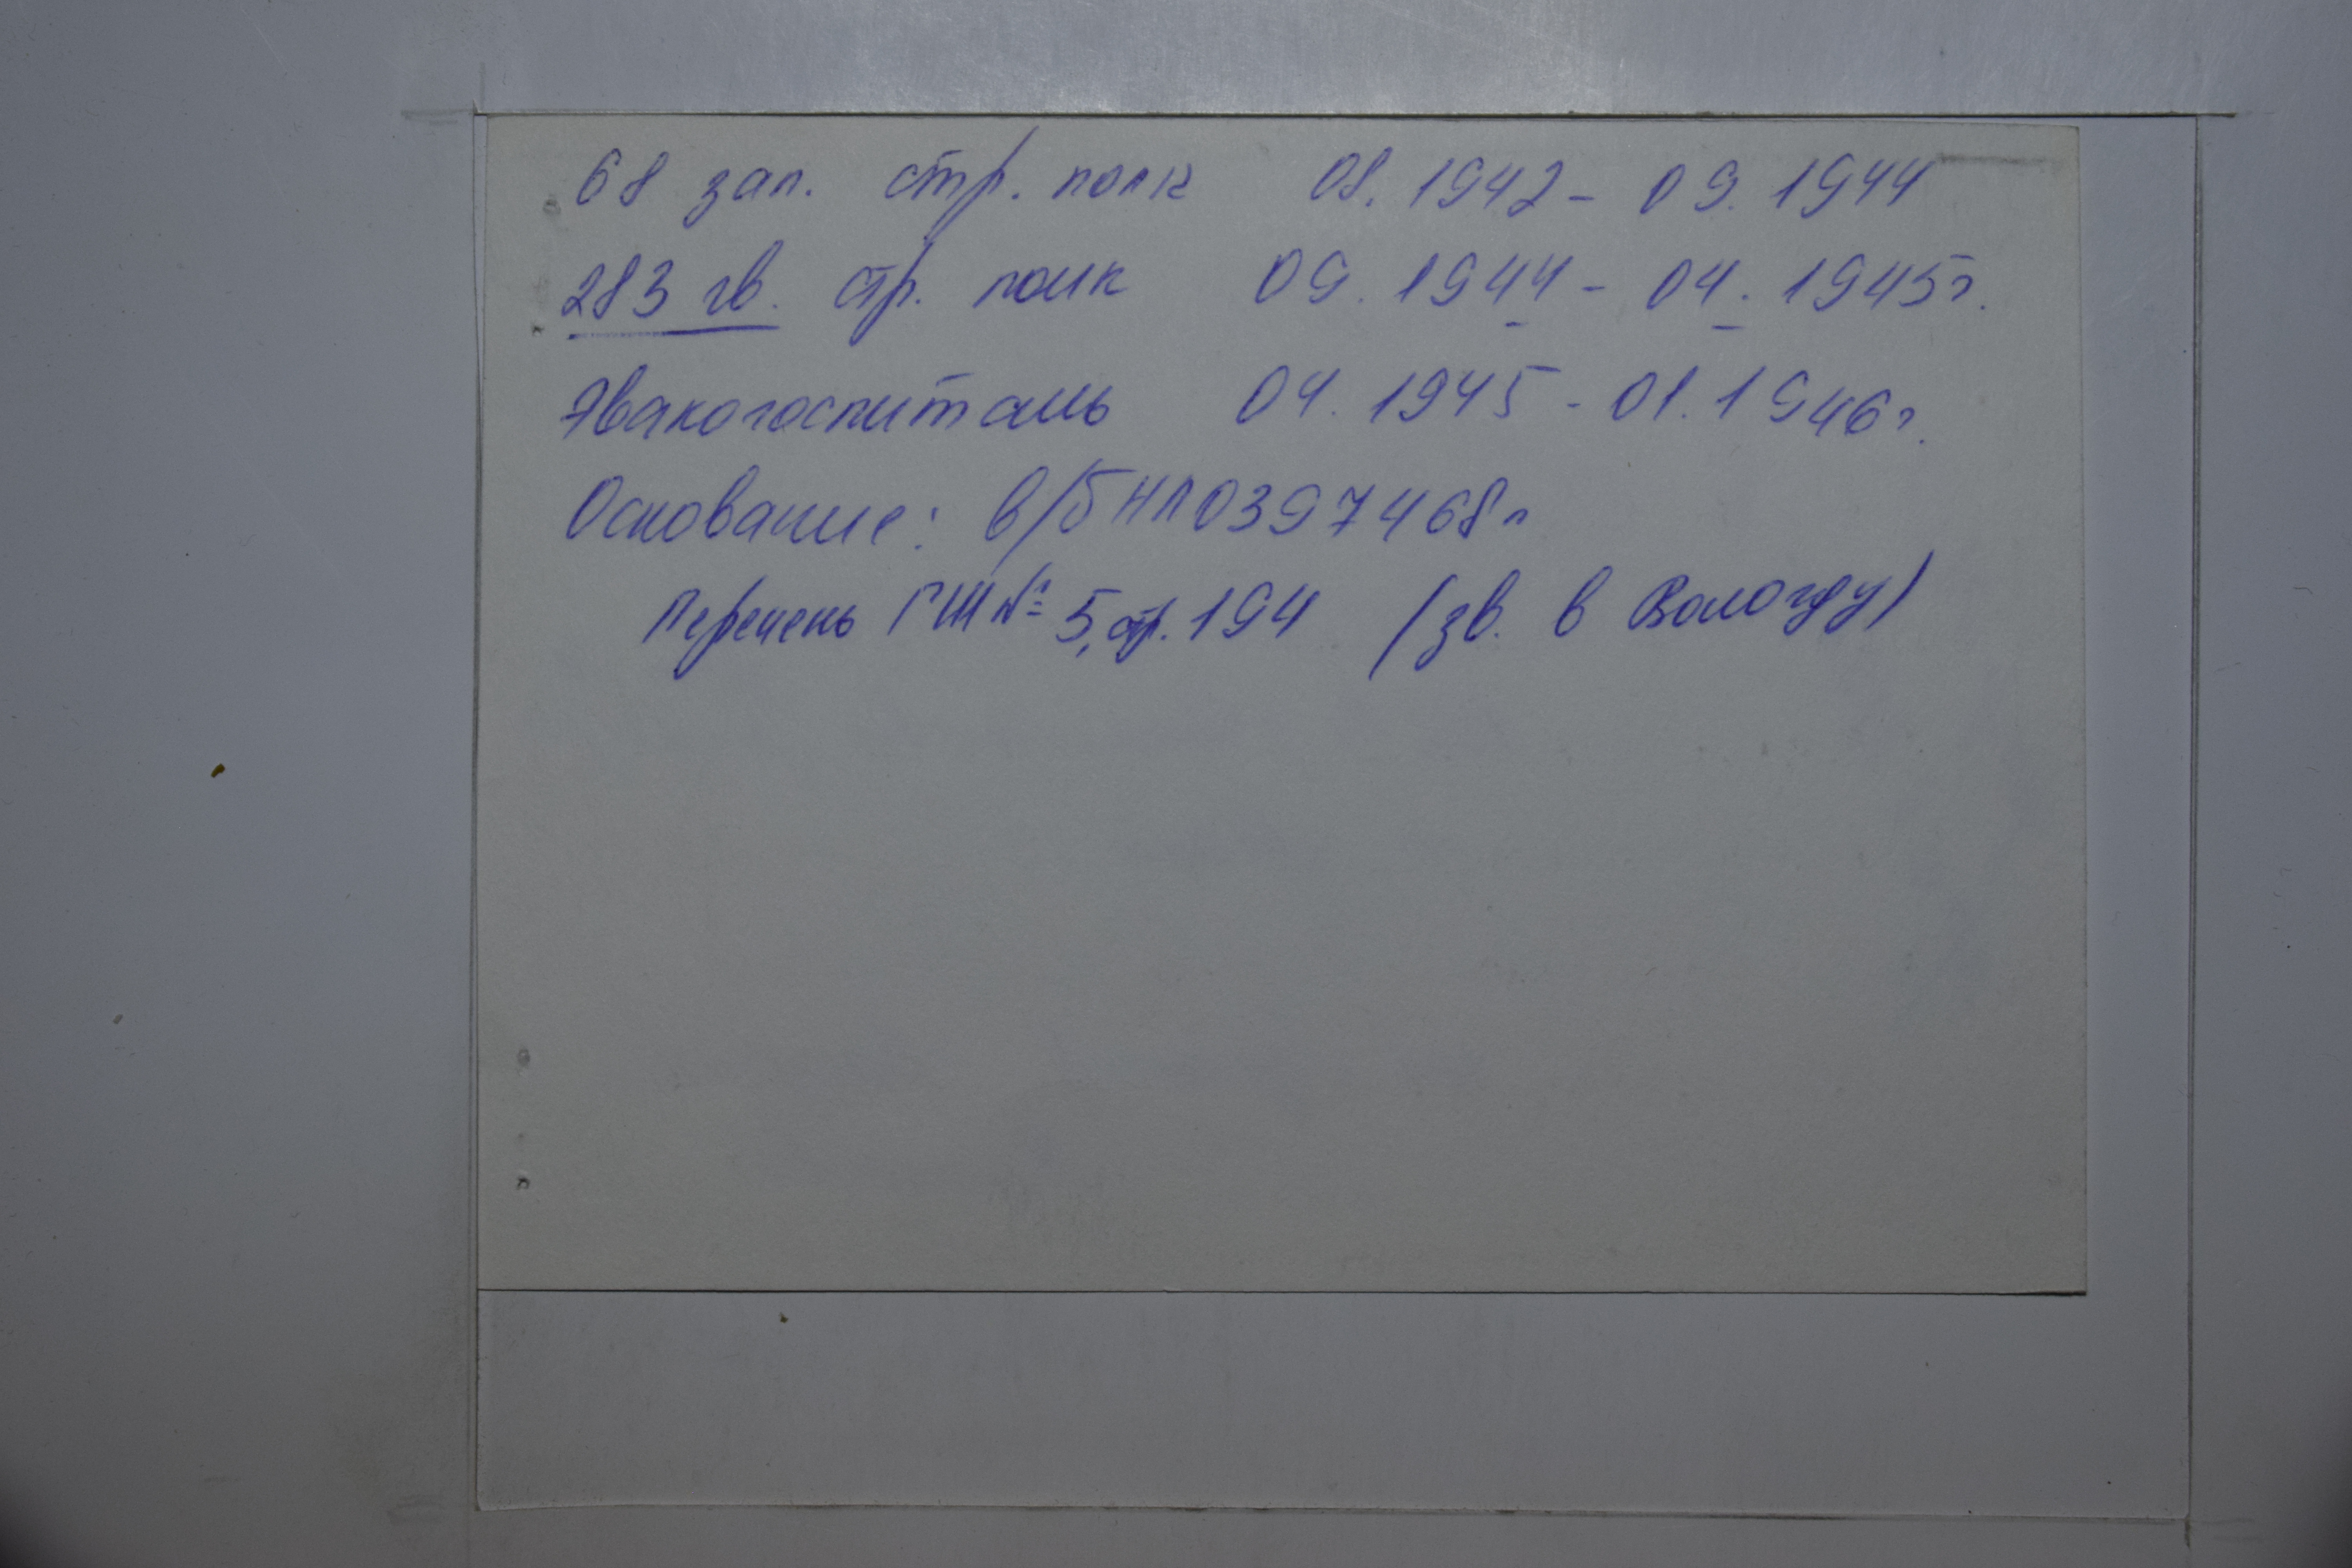 68 зап. стр. полк 08. 1942 - 09. 1944
283 гв. стр. полк 09. 1944 - 04. 1945г.
Эвакогоспиталь 04. 1945 - 01. 1946г.
Основание: в/б НЛ 0397468
Перечень ГШ № 5, стр. 194 (зв. в Вологду)